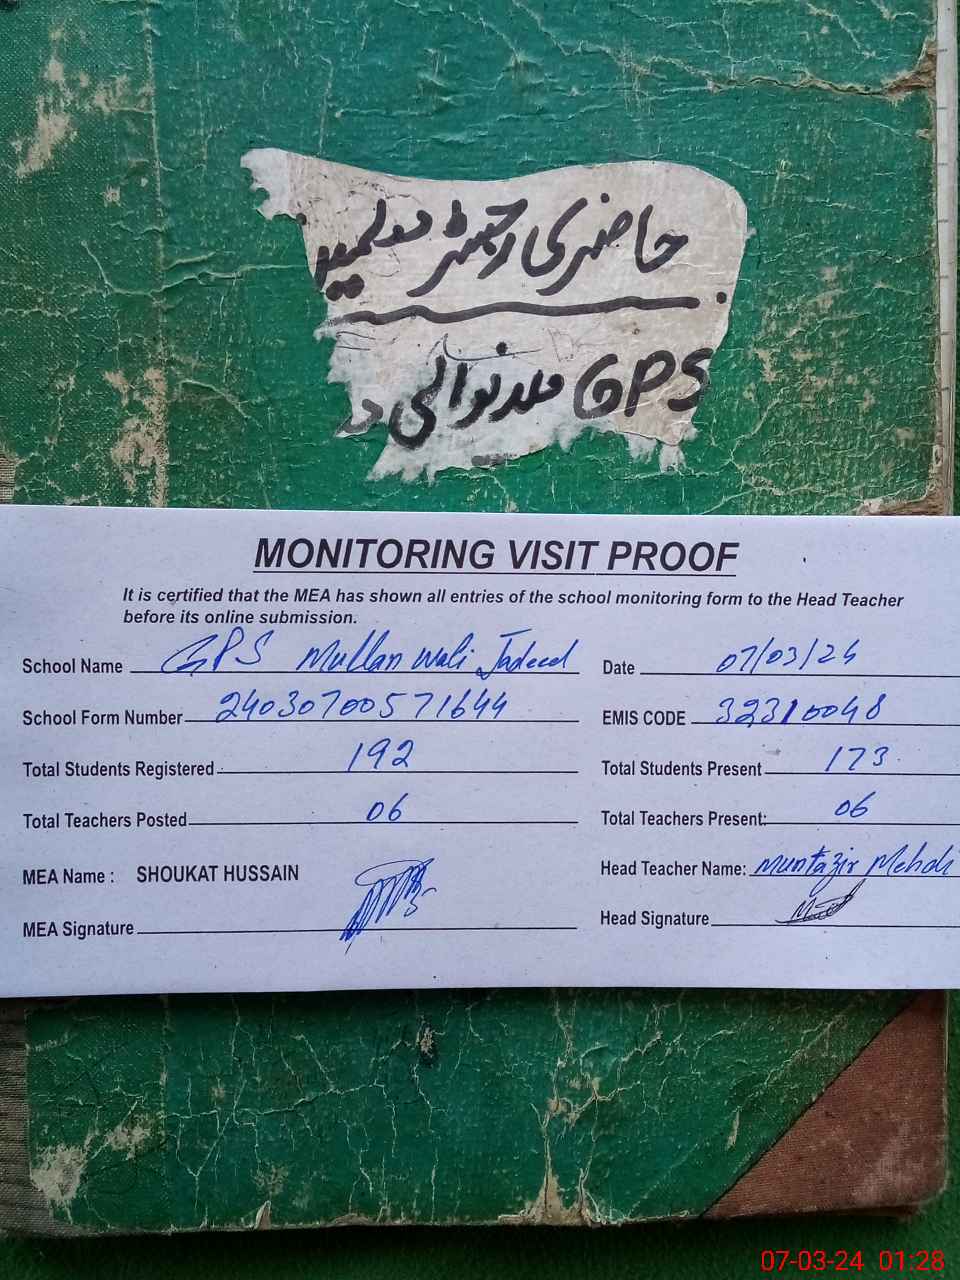 حاضری رجسٹر
GPS ملانوالی
MONITORING VISIT PROOF
It is certified that the MEA has shown all entries of the school monitoring form to the Head Teacher
before its online submission.
School Name GPS Mullan Wali Jadeed Date 07/03/24
School Form Number 240307005 71644 EMIS CODE 32310048
Total Students Registered 192 Total Students Present 173
Total Teachers Posted 06 Total Teachers Present: 06
MEA Name : SHOUKAT HUSSAIN Head Teacher Name: Muntazir Mehdi
MEA Signature Head Signature
07-03-24 01:28